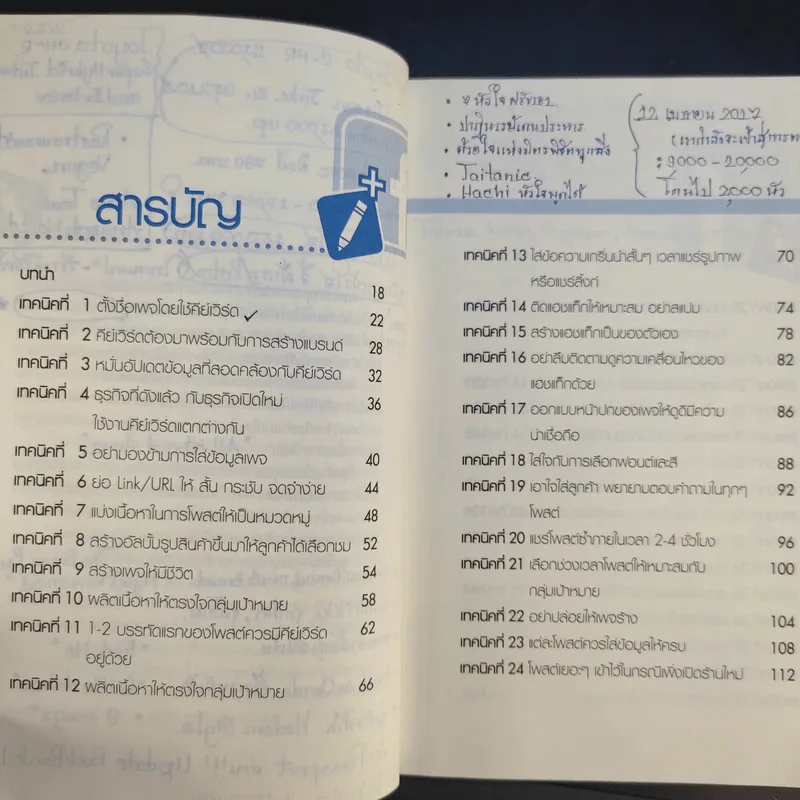 สารบัญ
บทนำ 18
เทคนิคที่ 1 ตั้งชื่อเพจโดยใช้คีย์เวิร์ด ✓ 22
เทคนิคที่ 2 คีย์เวิร์ดต้องมาพร้อมกับการสร้างแบรนด์ 28
เทคนิคที่ 3 หมั่นอัปเดตข้อมูลที่สอดคล้องกับคีย์เวิร์ด 32
เทคนิคที่ 4 ธุรกิจที่ดังแล้ว กับธุรกิจเปิดใหม่ 36
ใช้งานคีย์เวิร์ดแตกต่างกัน
เทคนิคที่ 5 อย่ามองข้ามการใส่ข้อมูลเพจ 40
เทคนิคที่ 6 ย่อ Link/URL ให้ สั้น กระชับ จดจำง่าย 44
เทคนิคที่ 7 แบ่งเนื้อหาในการโพสต์ให้เป็นหมวดหมู่ 48
เทคนิคที่ 8 สร้างอัลบั้มรูปสินค้าขึ้นมาให้ลูกค้าได้เลือกชม 52
เทคนิคที่ 9 สร้างเพจให้มีชีวิต 54
เทคนิคที่ 10 ผลิตเนื้อหาให้ตรงใจกลุ่มเป้าหมาย 58
เทคนิคที่ 11 1-2 บรรทัดแรกของโพสต์ควรมีคีย์เวิร์ด 62
อยู่ด้วย
เทคนิคที่ 12 ผลิตเนื้อหาให้ตรงใจกลุ่มเป้าหมาย 66
หัวใจ
12 เมษายน 2017
: 9000 - 20000
• Taitanic
• Hachi หัวใจพูดได้
เทคนิคที่ 13 ใส่ข้อความเกริ่นนำสั้นๆ เวลาแชร์รูปภาพ 70
หรือแชร์ลิ้งก์
เทคนิคที่ 14 ติดแฮชแท็กให้เหมาะสม อย่าสแปม 74
เทคนิคที่ 15 สร้างแฮชแท็กเป็นของตัวเอง 78
เทคนิคที่ 16 อย่าลืมติดตามดูความเคลื่อนไหวของ 82
แฮชแท็กด้วย
เทคนิคที่ 17 ออกแบบหน้าปกของเพจให้ดูดีมีความ 86
น่าเชื่อถือ
เทคนิคที่ 18 ใส่ใจกับการเลือกฟอนต์และสี 88
เทคนิคที่ 19 เอาใจใส่ลูกค้า พยายามตอบคำถามในทุกๆ 92
โพสต์
เทคนิคที่ 20 แชร์โพสต์ซ้ำภายในเวลา 2-4 ชั่วโมง 96
เทคนิคที่ 21 เลือกช่วงเวลาโพสต์ให้เหมาะสมกับ 100
กลุ่มเป้าหมาย
เทคนิคที่ 22 อย่าปล่อยให้เพจร้าง 104
เทคนิคที่ 23 แต่ละโพสต์ควรใส่ข้อมูลให้ครบ 108
เทคนิคที่ 24 โพสต์เยอะๆ เข้าไว้ในกรณีเพิ่งเปิดร้านใหม่ 112